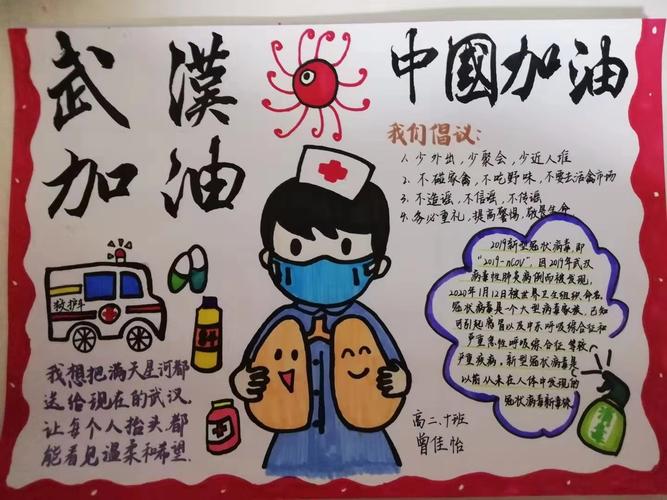 武漢
加油
中國加油
我们倡议:
1. 少外出，少聚会，少近人堆
2. 不碰家禽，不吃野味，不要去活禽市场
3. 不造谣，不信谣，不传谣
4. 务必重礼，提高警惕，敬畏生命
2019新型冠状病毒，即
"2019-nCoV"，因2019年武汉
病毒性肺炎病例而被发现，
2020年1月12日被世界卫生组织命名
冠状病毒是一个大型病毒家族，已知
可引起感冒以及中东呼吸综合征和
严重急性呼吸综合征等较
严重疾病，新型冠状病毒是
以前从未在人体中发现的
冠状病毒新毒株
救护车
我想把满天星河都
送给现在的武汉，
让每个人抬头都
能看见温柔和希望.
高二.十班
曾佳怡